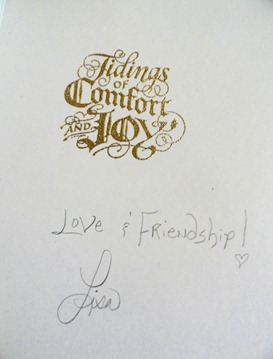 Tidings
OF
Comfort
AND JOY
Love & Friendship!
Lisa